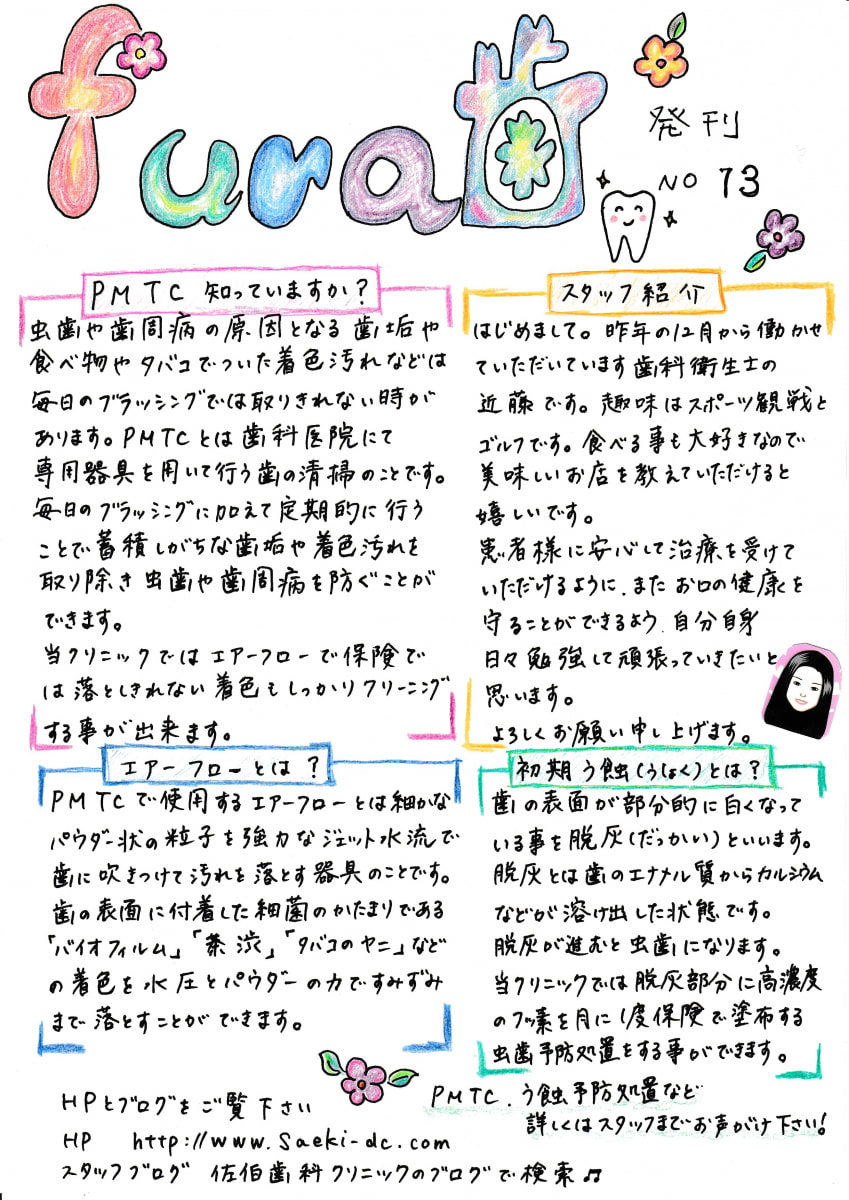 fura歯
発刊
NO 73
PMTC 知っていますか?
虫歯や歯周病の原因となる歯垢や
食べ物やタバコでついた着色汚れなどは
毎日のブラッシングでは取りきれない時が
あります。PMTCとは歯科医院にて
専用器具を用いて行う歯の清掃のことです。
毎日のブラッシングに加えて定期的に行う
ことで蓄積しがちな歯垢や着色汚れを
取り除き虫歯や歯周病を防ぐことが
できます。
当クリニックではエアーフローで保険で
は落としきれない着色もしっかりクリーニング
する事が出来ます。
スタッフ紹介
はじめまして。昨年の12月から働かせ
ていただいています歯科衛生士の
近藤です。趣味はスポーツ観戦と
ゴルフです。食べる事も大好きなので
美味しいお店を教えていただけると
嬉しいです。
患者様に安心して治療を受けて
いただけるように、またお口の健康を
守ることができるよう、自分自身
日々勉強して頑張っていきたいと
思います。
よろしくお願い申し上げます。
エアーフローとは?
PMTCで使用するエアーフローとは細かな
パウダー状の粒子を強力なジェット水流で
歯に吹きつけて汚れを落とす器具のことです。
歯の表面に付着した細菌のかたまりである
「バイオフィルム」「茶渋」「タバコのヤニ」など
の着色を水圧とパウダーの力ですみずみ
まで落とすことができます。
初期う蝕(うしょく)とは?
歯の表面が部分的に白くなって
いる事を脱灰(だっかい)といいます。
脱灰とは歯のエナメル質からカルシウム
などが溶け出した状態です。
脱灰が進むと虫歯になります。
当クリニックでは脱灰部分に高濃度
のフッ素を月に1度保険で塗布する
虫歯予防処置をする事ができます。
PMTC、う蝕予防処置など
詳しくはスタッフまでお声がけ下さい!
HPとブログをご覧下さい
HP http://www.saeki-dc.com
スタッフブログ 佐伯歯科クリニックのブログで検索♫